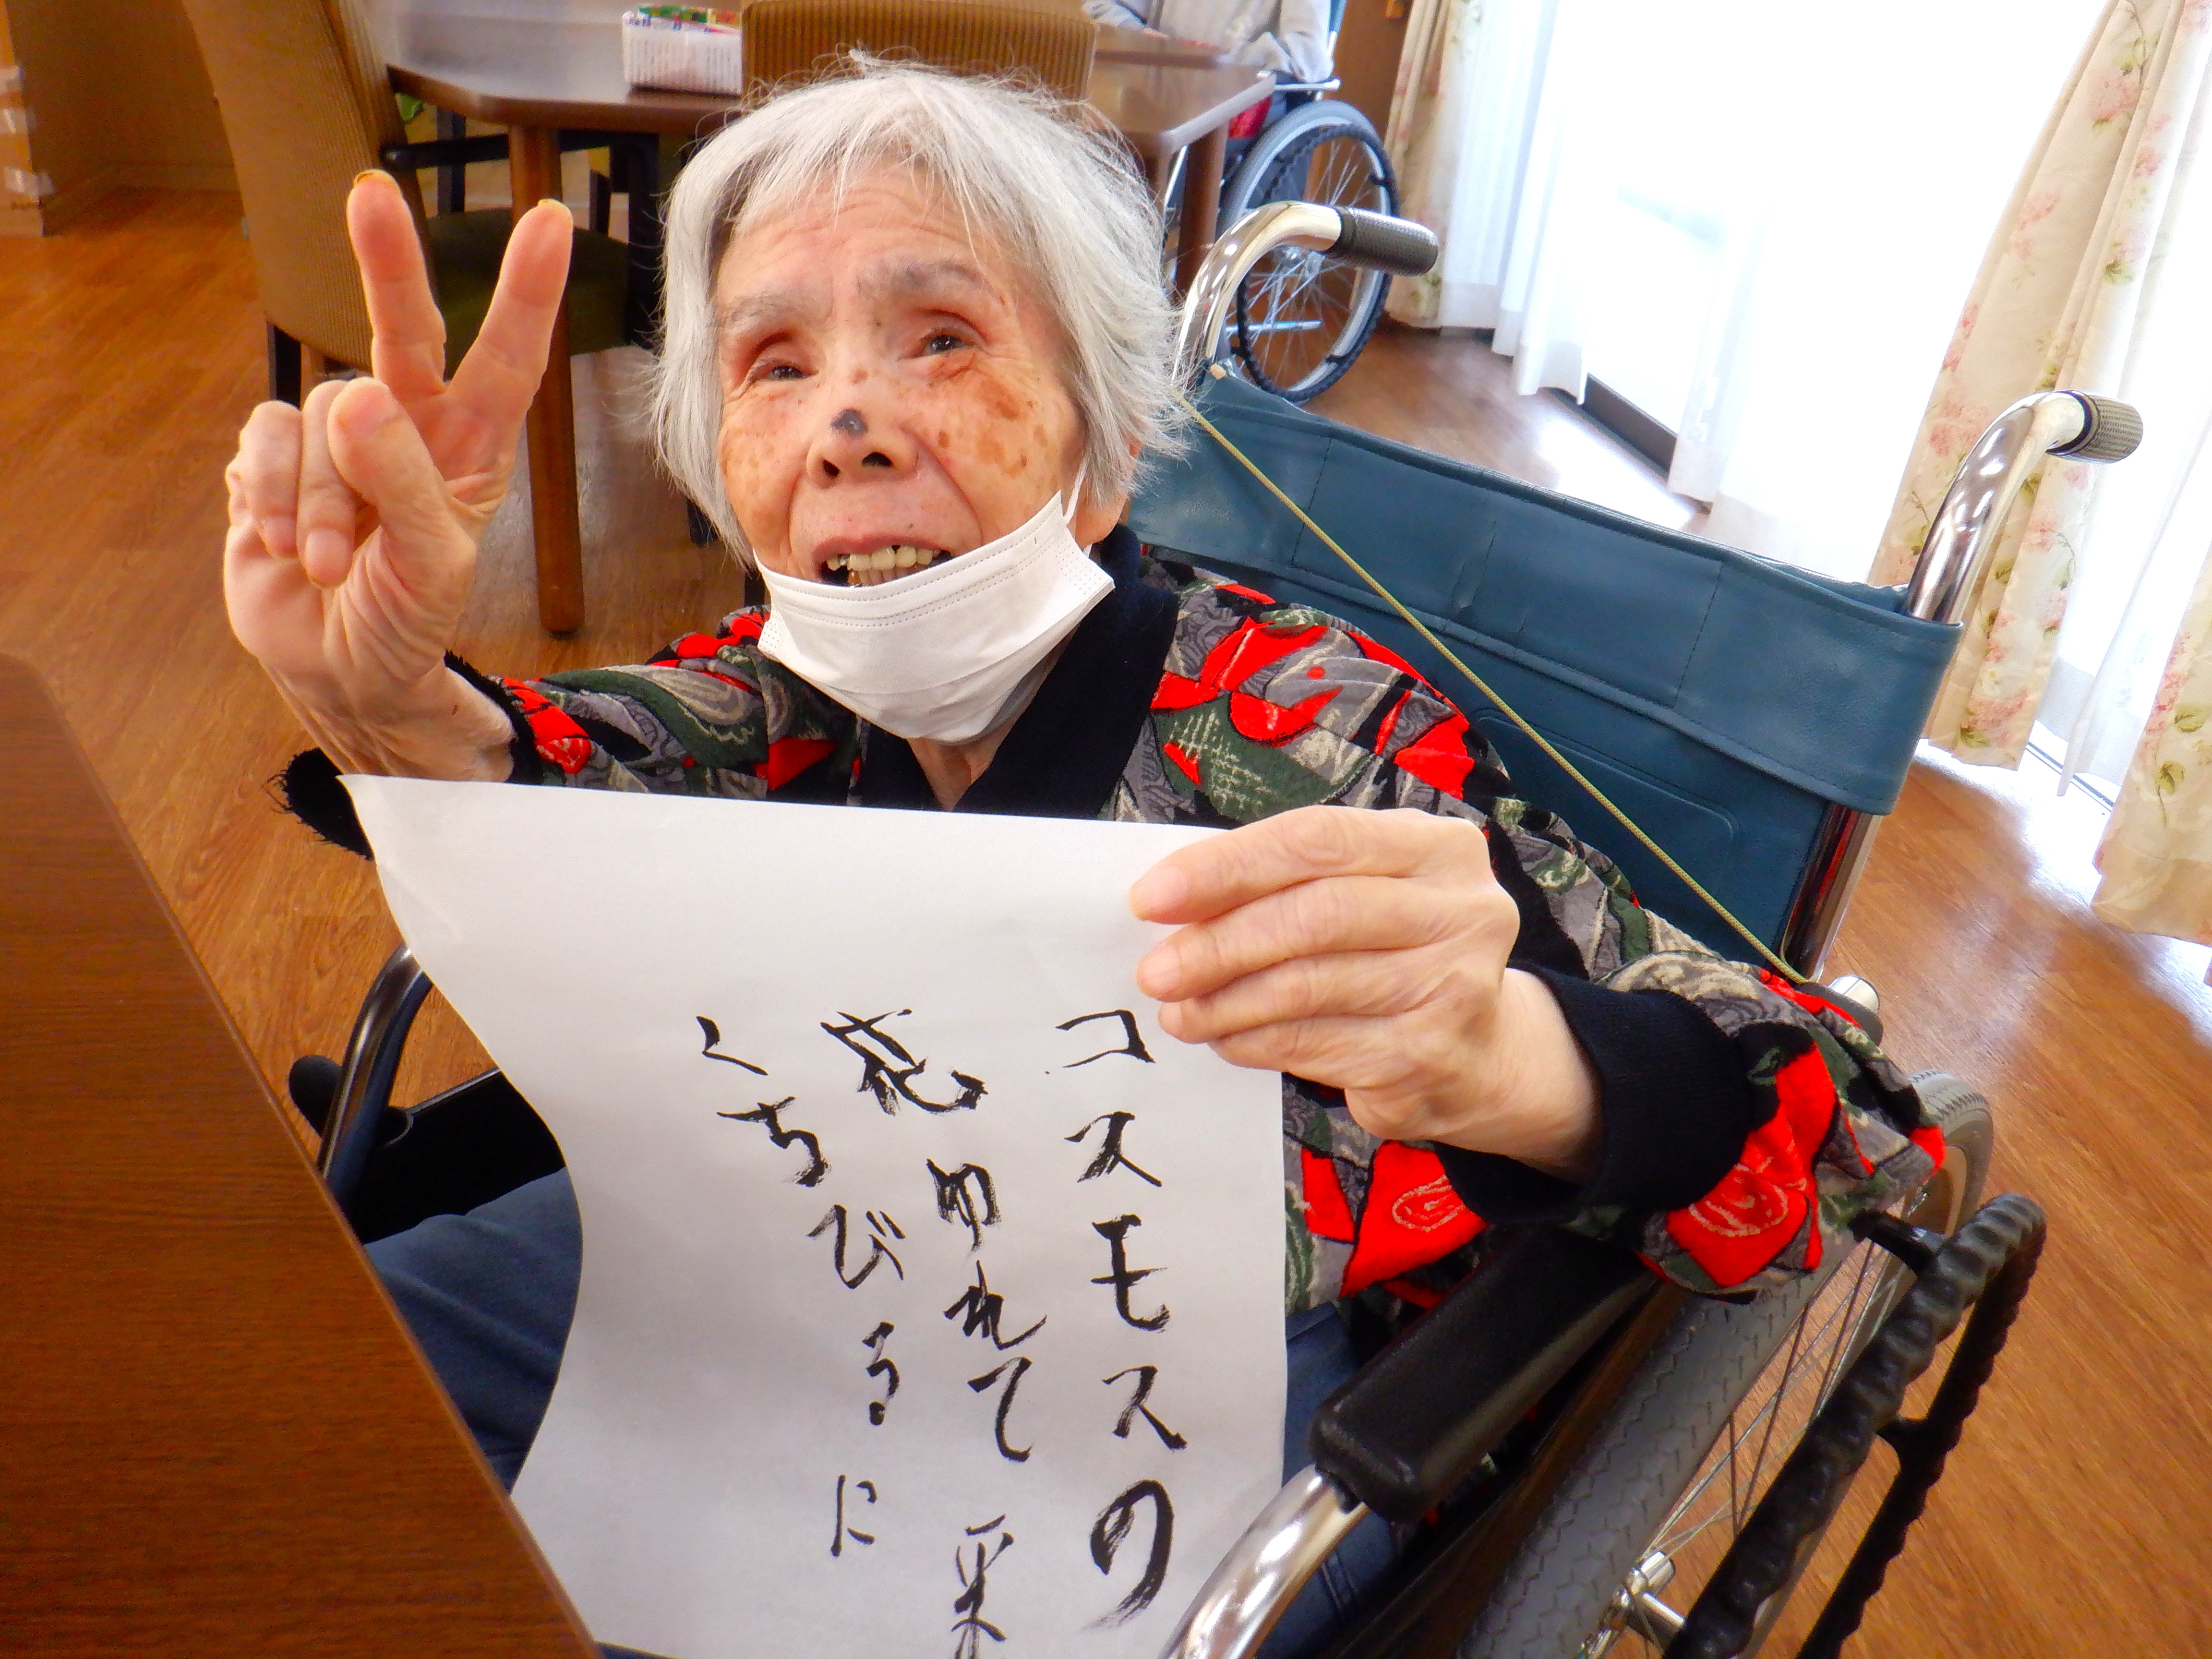 コスモスの
花ゆれて来
くちびるに